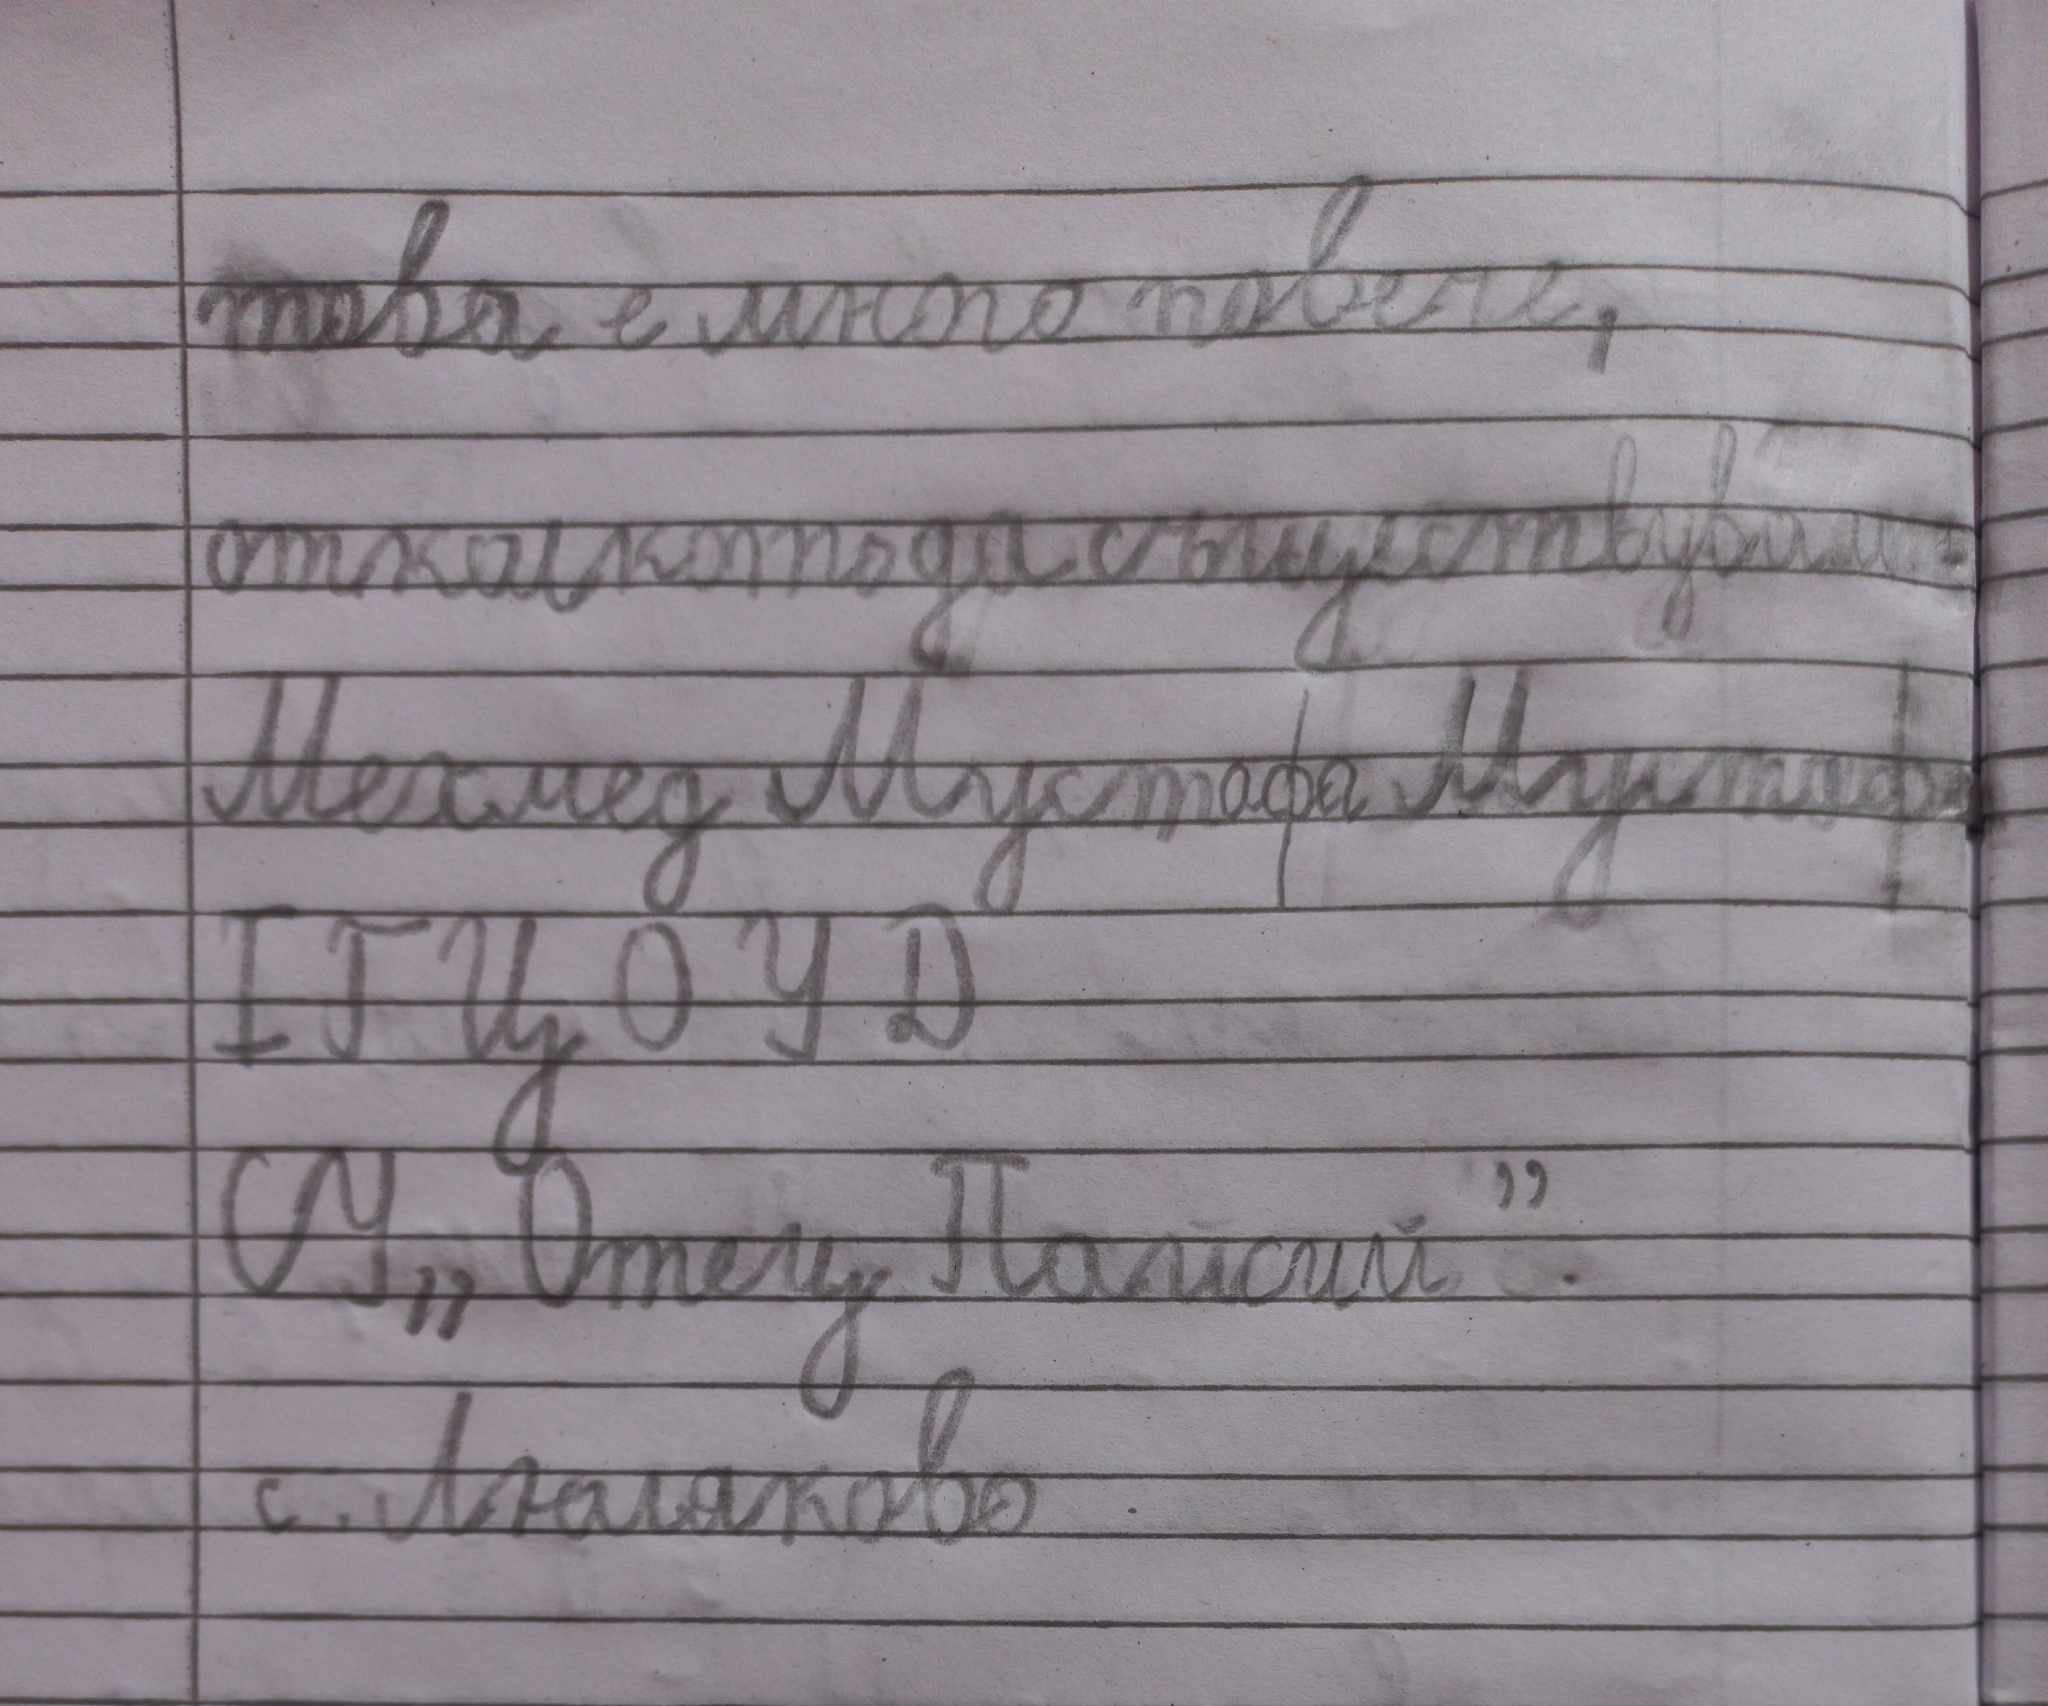 това е много повече,
отколкото да съчувствувам.
Мехмед Мустафа Мустафа
I Г ЦОУД
ОУ „Отец Паисий”.
с. Люляково